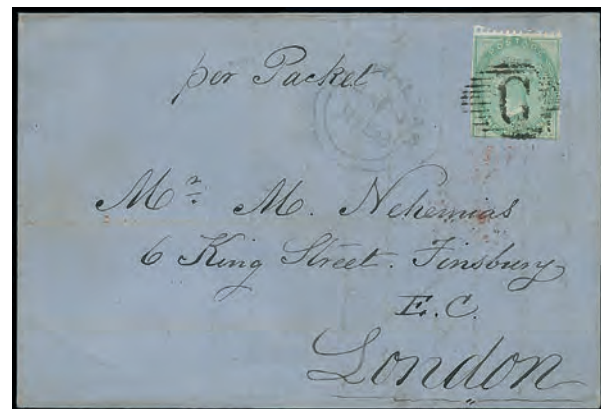 POSTAGE
per Packet
C
Mr. M. Nehemias
6 King Street. Finsbury
E.C.
London